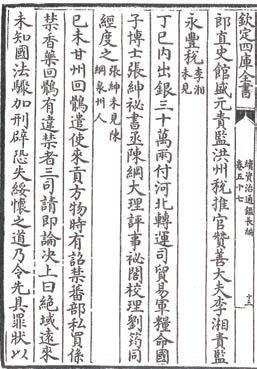 欽定四庫全書
續資治通鑑長編
卷五十七
郎直史館盛元貴監洪州税推官贊善大夫李湘貴監
永豐税李湘未見
丁巳内出銀三十萬兩付河北轉運司貿易軍糧命國
子博士張紳祕書丞陳綱大理評事祕閣校理劉筠同
經度之張紳未見陳綱泉州人
己未甘州回鶻遣使來貢方物時有詔禁蕃部私買係
禁香藥回鶻有違禁者三司請即論決上曰絶域遠來
未知國法驟加刑辟恐失綏懷之道乃令先具罪狀以